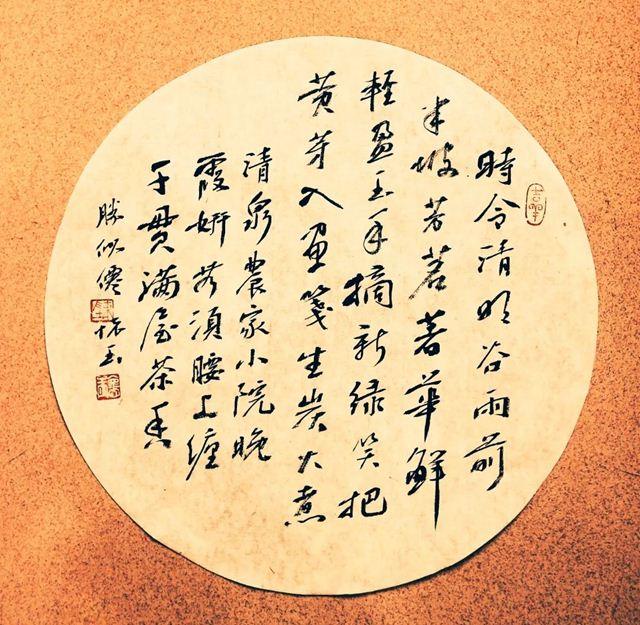 時令清明谷雨前
半坡芳茗著華鮮
輕盈玉手摘新绿笑把
黄芽入画箋生炭火煮
清泉農家小院晚
霞妍何須腰上缠
千貫满屋茶香
勝似僊
怀玉